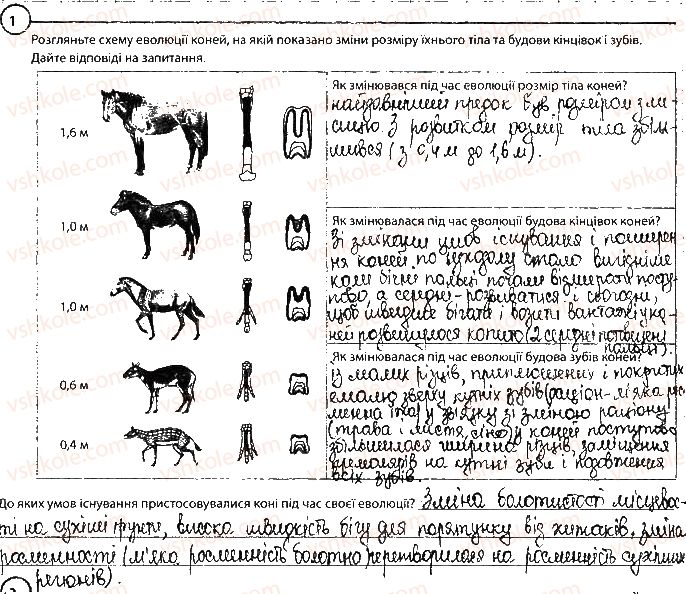 1
Розгляньте схему еволюції коней, на якій показано зміни розміру їхнього тіла та будови кінцівок і зубів.
Дайте відповіді на запитання.
1,6 м
1,0 м
1,0 м
0,6 м
0,4 м
Як змінювався під час еволюції розмір тіла коней?
найдавніший предок був розміром з ли-
сицю З розвитком розмір тіла збіль-
шився (з 0,4 м до 1,6 м).
Як змінювалася під час еволюції будова кінцівок коней?
Зі зміною умов існування і поширен-
ня коней по суходолу стало вигідніше
коли бічні пальці почали відмирати посту-
пово, а середні - розвиватися і сьогодні,
щоб швидше бігати і возити вантажі у ко-
ней розвинулося копито (2 середні потовщені
пальці).
Як змінювалася під час еволюції будова зубів коней?
Із малих різців, притисненних і покритих
емалю зверху кутніх зубів (раціон - м'яка рос
менна їжа) у зв'язку зі зміною раціону
(трава і листя, сіно) у коней поступово
збільшилася ширина різців, заміщення
премолярів на кутні зуби і подовження
всіх зубів.
До яких умов існування пристосовувалися коні під час своєї еволюції? Зміна болотистості місцево-
ті на сухіші ґрунти, висока швидкість бігу для порятунку від хижаків, зміна
рослинності (м'яка рослинність болотно перетворилася на рослинність сухіших
регіонів).
vshkole.com
vshkole.com
vshkole.com
vshkole.com